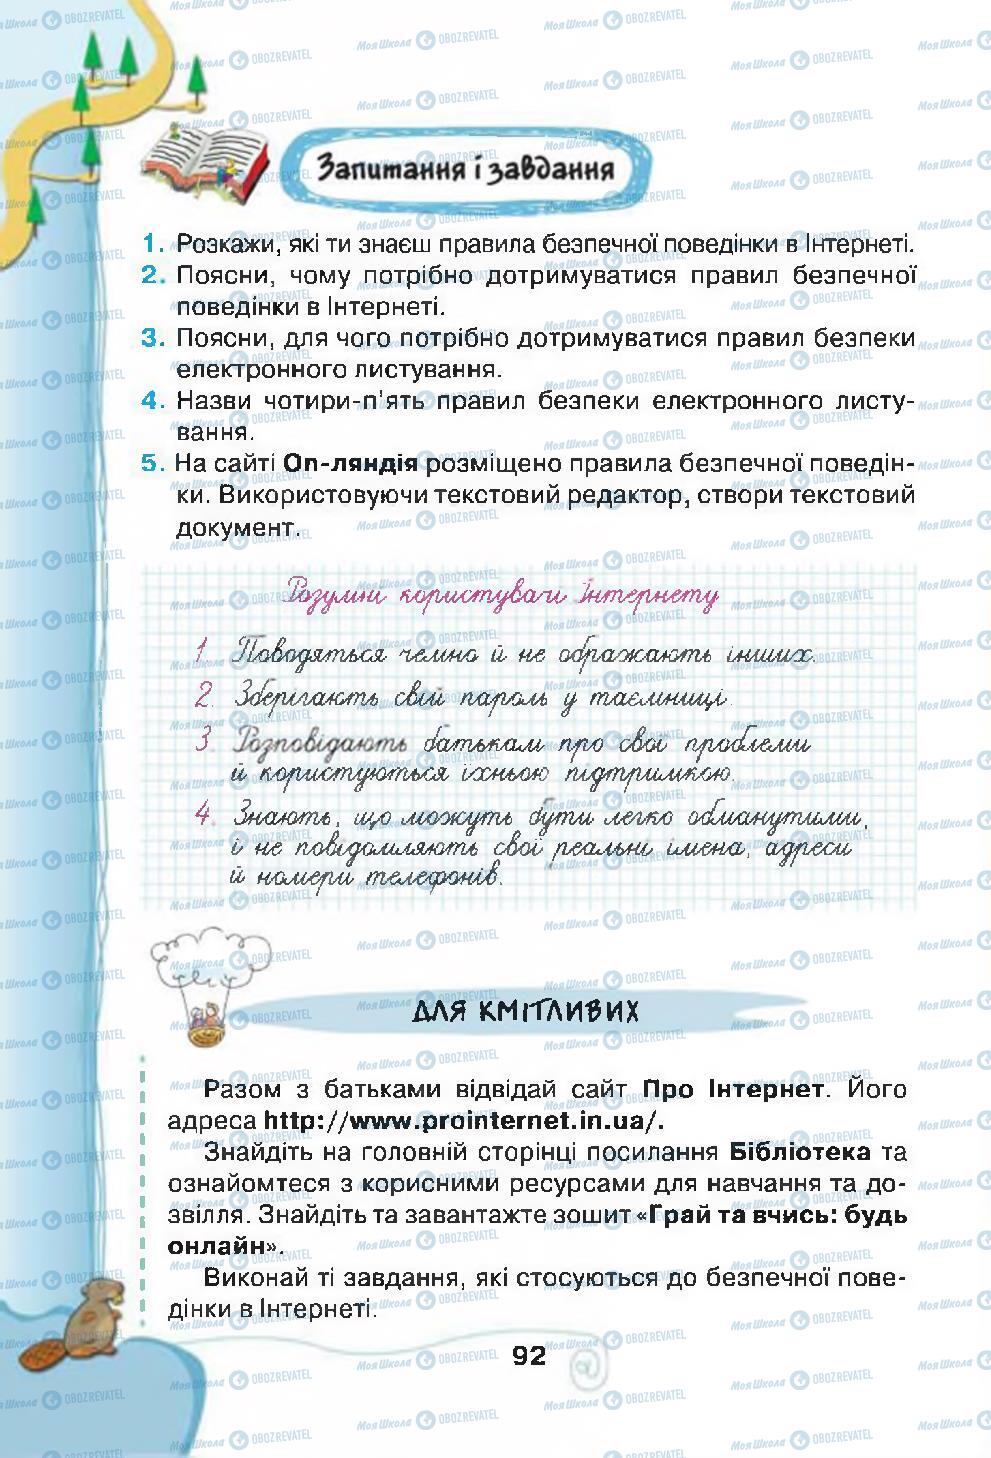 Запитання і завдання
1. Розкажи, які ти знаєш правила безпечної поведінки в Інтернеті.
2. Поясни, чому потрібно дотримуватися правил безпечної
поведінки в Інтернеті.
3. Поясни, для чого потрібно дотримуватися правил безпеки
електронного листування.
4. Назви чотири-п'ять правил безпеки електронного листу-
вання.
5. На сайті Оп-ляндія розміщено правила безпечної поведін-
ки. Використовуючи текстовий редактор, створи текстовий
документ.
Розумні користувачі Інтернету
1. Поводяться чемно й не ображають інших.
2. Зберігають свій пароль у таємниці.
3. Розповідають батькам про свої проблеми
й користуються їхньою підтримкою.
4. Знають, що можуть бути легко обманутими,
і не повідомляють свої реальні імена, адреси
й номери телефонів.
ДЛЯ КМІТЛИВИХ
Разом з батьками відвідай сайт Про Інтернет. Його
адреса http://www.prointernet.in.ua/.
Знайдіть на головній сторінці посилання Бібліотека та
ознайомтеся з корисними ресурсами для навчання та до-
звілля. Знайдіть та завантажте зошит «Грай та вчись: будь
онлайн».
Виконай ті завдання, які стосуються до безпечної пове-
дінки в Інтернеті.
92
@
МояШкола OBOZREVATEL